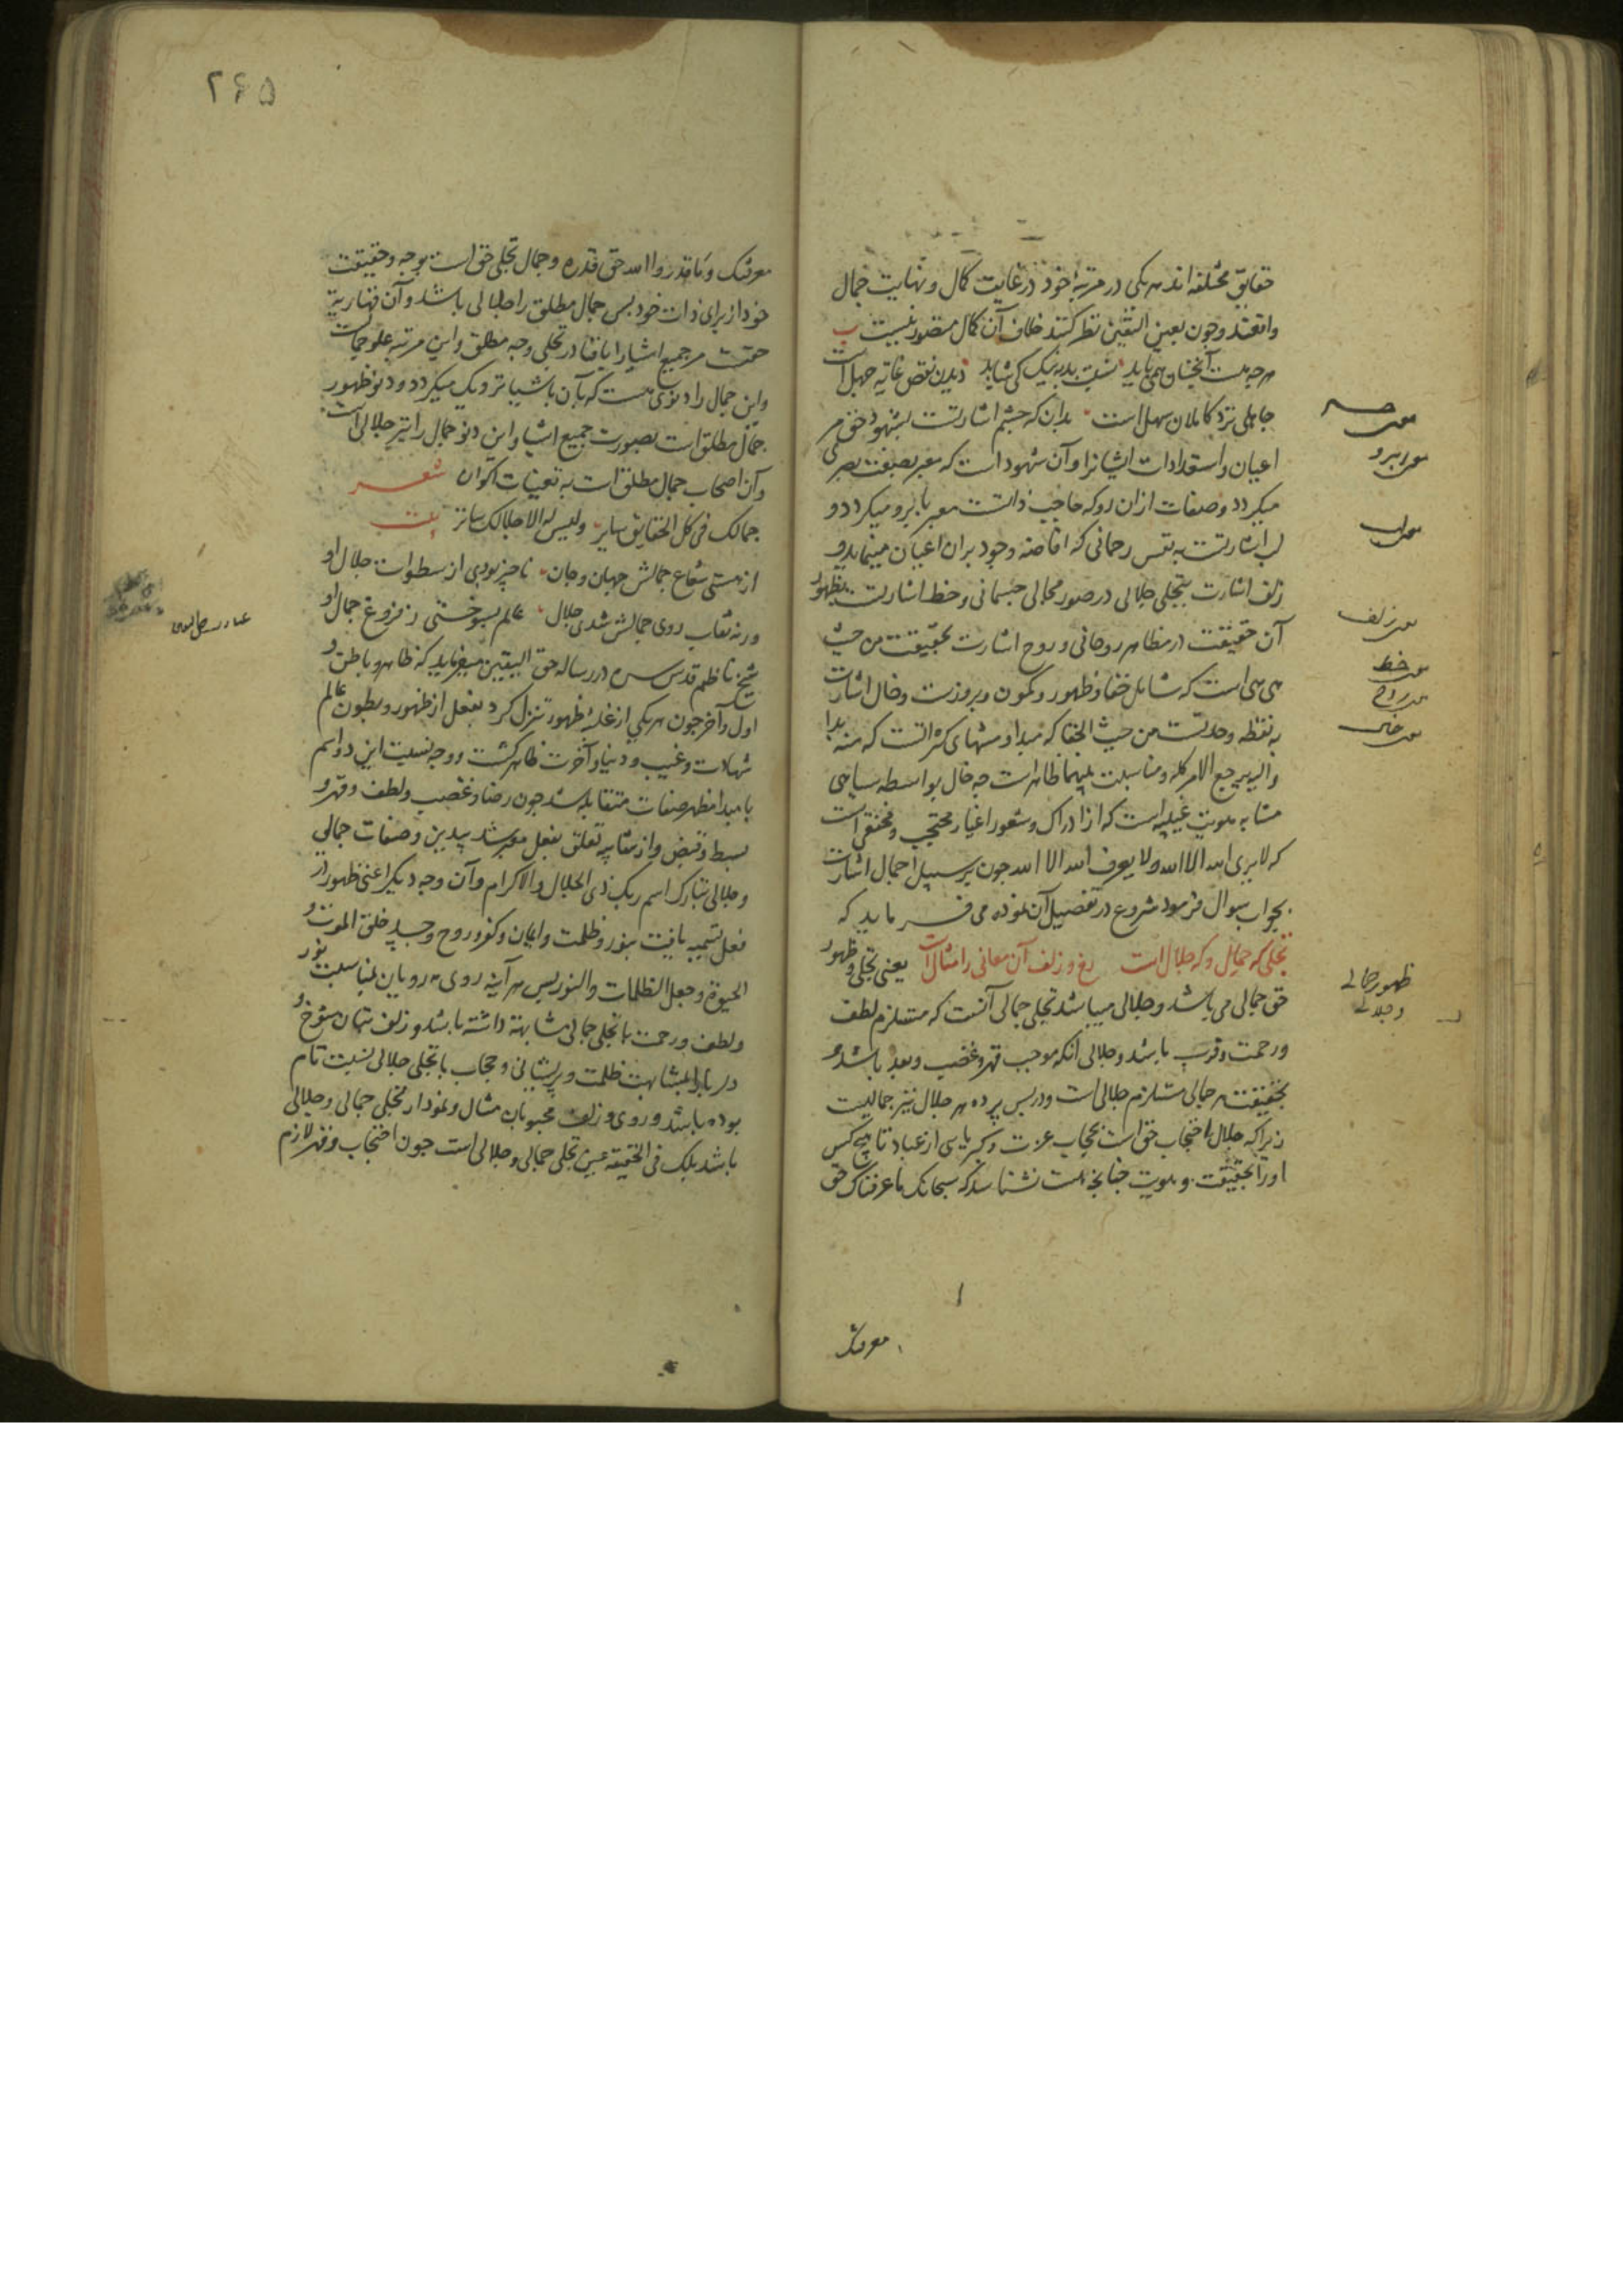 حقایق مختلفه اند هر یکی در مرتبهٔ خود در غایت کمال و نهایت جمال
واقعند و چون بعین الیقین نظر کنند خلاف آن کمال متصور نیست ب
هر چه هست آنچنان همی باید نسبت بد به نیک کی شاید دیدن نقص غایه جهل است
جاهلی نزد کاملان سهل است بدان که چشم اشارتست بشهود حق مر
اعیان و استعدادات ایشانرا و آن شهود است که معبر بصفت بصیری
میکردد و صفات ازان رو که حاجب ذاتست معبر بابرو میکردد و
لب اشارتست به نفس رحمانی که افاضه وجود بر ان اعیان مینماید و
زلف اشارت بتجلی جلالی در صور مجالی جسمانی و خط اشارتست بظهور
آن حقیقت در مظاهر روحانی و روح اشارت بحقیقت من حیث
هی هی است که شامل خفا و ظهور و کمون و بروزست و خال اشارت
به نقطه وحدتست من حیث الخفا که مبدا و منتهای کثراتست که منه بدا
والیه یرجع الامر کله و مناسبت بینهما ظاهرست چه خال بواسطه سیاهی
مشابه هویت غیبیه است که از ادراک و شعور اغیار محتجب و مختفی است
که لا یری الله الا الله ولا یعرف الله الا الله چون بر سبیل اجمال اشارت
بجواب سوال فرمود شروع در تفصیل آن نموده می فرماید که
تجلی که جمال و که جلال است رخ و زلف آن معانی را مثال است یعنی تجلی و ظهور
حق جمالی می باشد و جلالی میباشد تجلی جمالی آنست که مستلزم لطف
و رحمت و قرب باشد و جلالی آنکه موجب قهر و غضب و بعد باشد و
بحقیقت هر جمالی مستلزم جلالی است و در پس پرده هر جلال نیز جمالیست
زیرا که جلال احتجاب حق است بحجاب عزت و کبریایی از عباد تا هیچ کس
او را بحقیقت و هویت چنانچه هست نشناسد که سبحانک ما عرفناک حق
معرفتک
معنی ابرو
معنی لب
معنی زلف
معنی خط
معنی روح
معنی خال
ظهور جمالی
و جلالی
۲۶۵
معرفتک و ما قدروا الله حق قدره و جمال تجلی حق است بوجه و حقیقت
خود از برای ذات خود پس جمال مطلق را جلالی باشد و آن قهاریة
حقست مر جمیع اشیا را بافنا در تجلی وجه مطلق و این مرتبه علو جمالست
و این جمال را دنوی هست که بآن باشیا نزدیک میکردد و دنو ظهور
جمال مطلق است بصورت جمیع اشیا و این دنو جمال را نیز جلالی است
و آن احتجاب جمال مطلق است به تعینات اکوان شعر
جمالک فی کل الحقایق سایر ولیس له الا جلالک ساتر بیت
از هستی شعاع جمالش جهان و جان ناچیز بودی از سطوات جلال او
ورنه نقاب روی جمالش شدی جلال عالم بسوختی ز فروغ جمال او
شیخ ناظم قدس سره در رساله حق الیقین میفرماید که ظاهر و باطن و
اول و آخر چون هر یکی از غلبهٔ ظهور تنزل کرد بفعل از ظهور و بطون عالم
شهادت و غیب و دنیا و آخرت ظاهر کشت و وجه نسبت این دو اسم
با مبدا مظهر صفات متقابله شد چون رضا و غضب و لطف و قهر و
بسط و قبض و از تشابه تعلق بفعل معبر شد بیدین و صفات جمالی
و جلالی تبارک اسم ربک ذی الجلال و الاکرام و آن وجه دیکر اعنی ظهور از
فعل تسمیه یافت بنور و ظلمت و ایمان و کفر و روح و جسد خلق الموت و
الحیوة و جعل الظلمات والنور پس هر آینه روی مهرویان بمناسبت نور
و لطف و رحمت با تجلی جمالی مشابهة داشته باشد و زلف بتان شوخ و
دلربا را بمشابهت ظلمت و پریشانی و حجاب با تجلی جلالی نسبت تام
بوده باشد و روی و زلف محبوبان مثال و نمودار تجلی جمالی و جلالی
باشد بلک فی الحقیقه عین تجلی جمالی و جلالی است چون احتجاب و قهر لازم